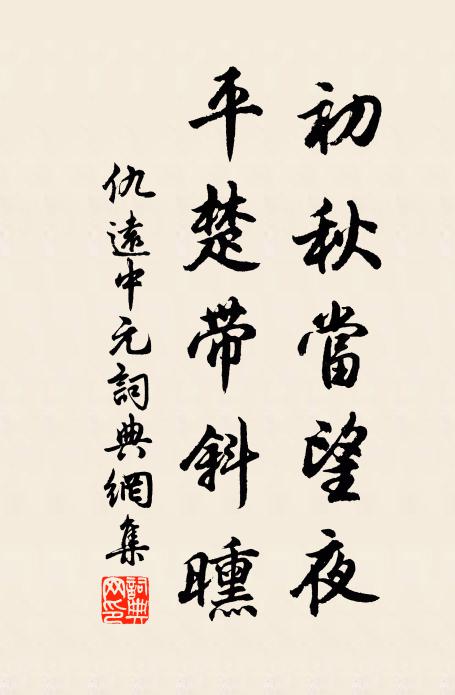 初秋當望夜
平楚带斜曛
仇遠中元詞典網集
詞典网印